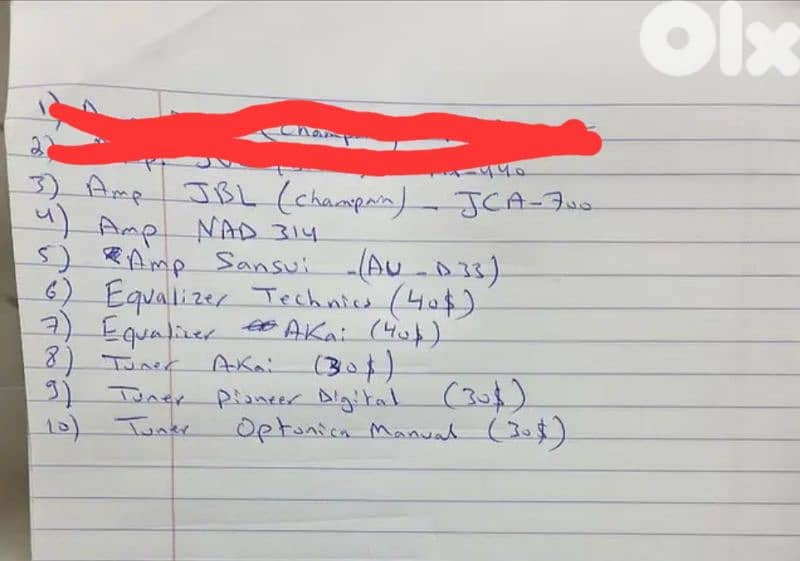 Olx
1)
(Champ
2)
-440
3) Amp JBL (champain) - JCA-700
4) Amp NAD 314
5) Amp Sansui -(AU-D33)
6) Equalizer Technics (40$)
7) Equalizer AKai (40$)
8) Tuner AKai (30$)
9) Tuner Pioneer Digital (30$)
10) Tuner Optonica Manual (30$)